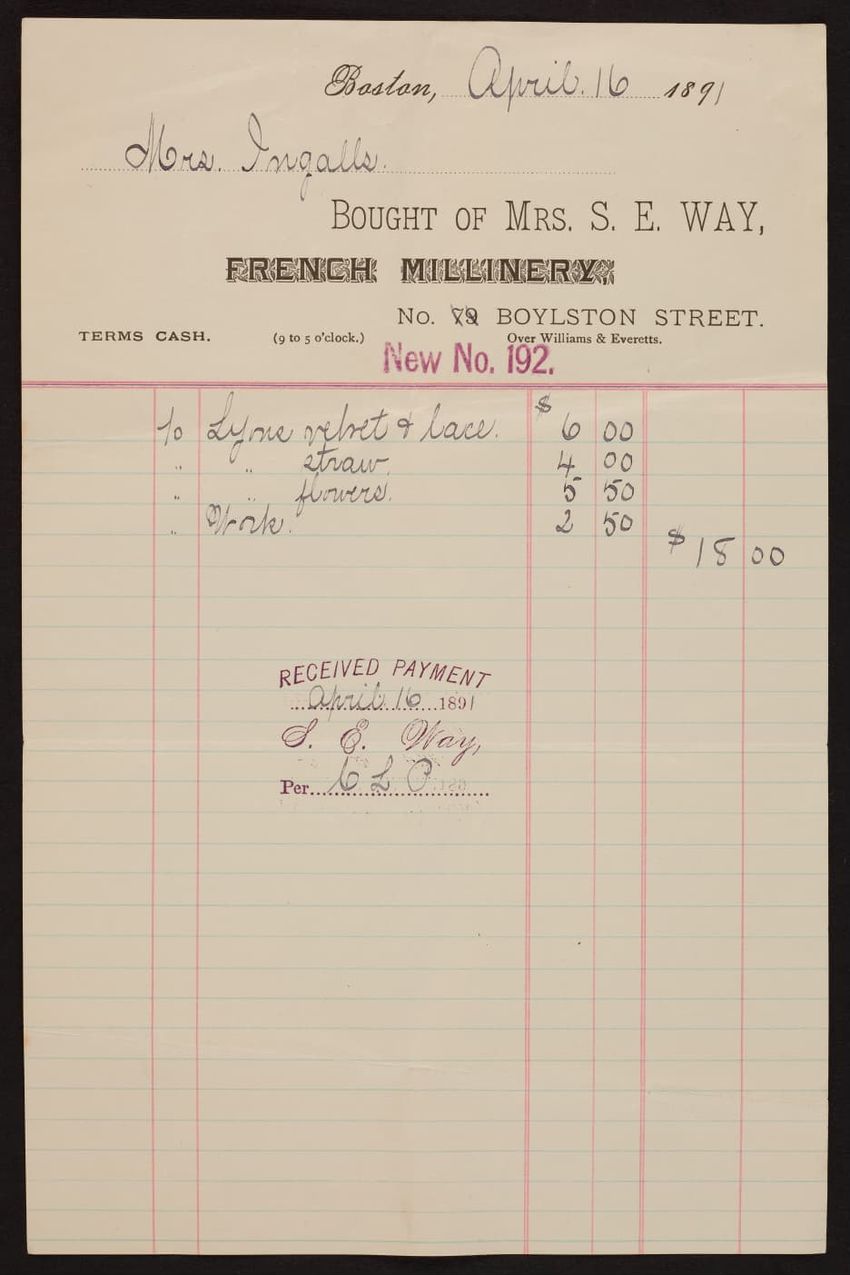 Boston, April. 16 1891
Mrs. Ingalls.
BOUGHT OF MRS. S. E. WAY,
FRENCH MILLINERY,
No. 79 BOYLSTON STREET.
TERMS CASH. (9 to 5 o'clock.) Over Williams & Everetts.
New No. 192.
To Lyons velvet & lace. $ 6 00
" " straw. 4 00
" " flowers. 5 50
" Work. 2 50
$ 18 00
RECEIVED PAYMENT
April 16 1891
S. E. Way,
Per C L P